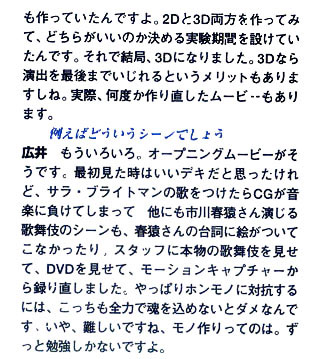 も作っていたんですよ。2Dと3D両方を作ってみ
て、どちらがいいのか決める実験期間を設けてい
たんです。それで結局、3Dになりました。3Dなら
演出を最後までいじれるというメリットもありま
すしね。実際、何度か作り直したムービーもあり
ます。
例えばどういうシーンでしょう
広井　もういろいろ。オープニングムービーがそ
うです。最初見た時はいいデキだと思ったけれ
ど、サラ・ブライトマンの歌をつけたらCGが音
楽に負けてしまって　他にも市川春猿さん演じる
歌舞伎のシーンも、春猿さんの台詞に絵がついて
こなかったり、スタッフに本物の歌舞伎を見せ
て、DVDを見せて、モーションキャプチャーか
ら録り直しました。やっぱりホンモノに対抗する
には、こっちも全力で魂を込めないとダメなんで
す、いや、難しいですね、モノ作りってのは。ず
っと勉強しかないですよ。